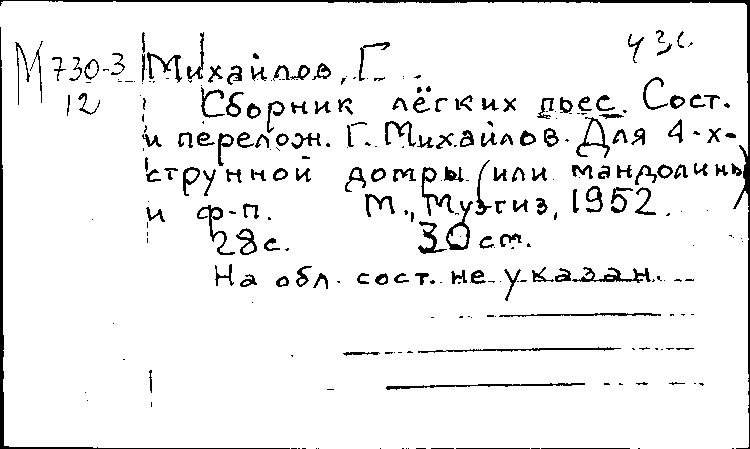 М 730-3
12
Михайлов, Г.
Сборник лёгких пьес. Сост.
и перелож. Г. Михайлов. Для 4-х-
струнной домры (или мандолины)
и ф-п. М., Музгиз, 1952.
28с. 30 см.
На обл. сост. не указан.